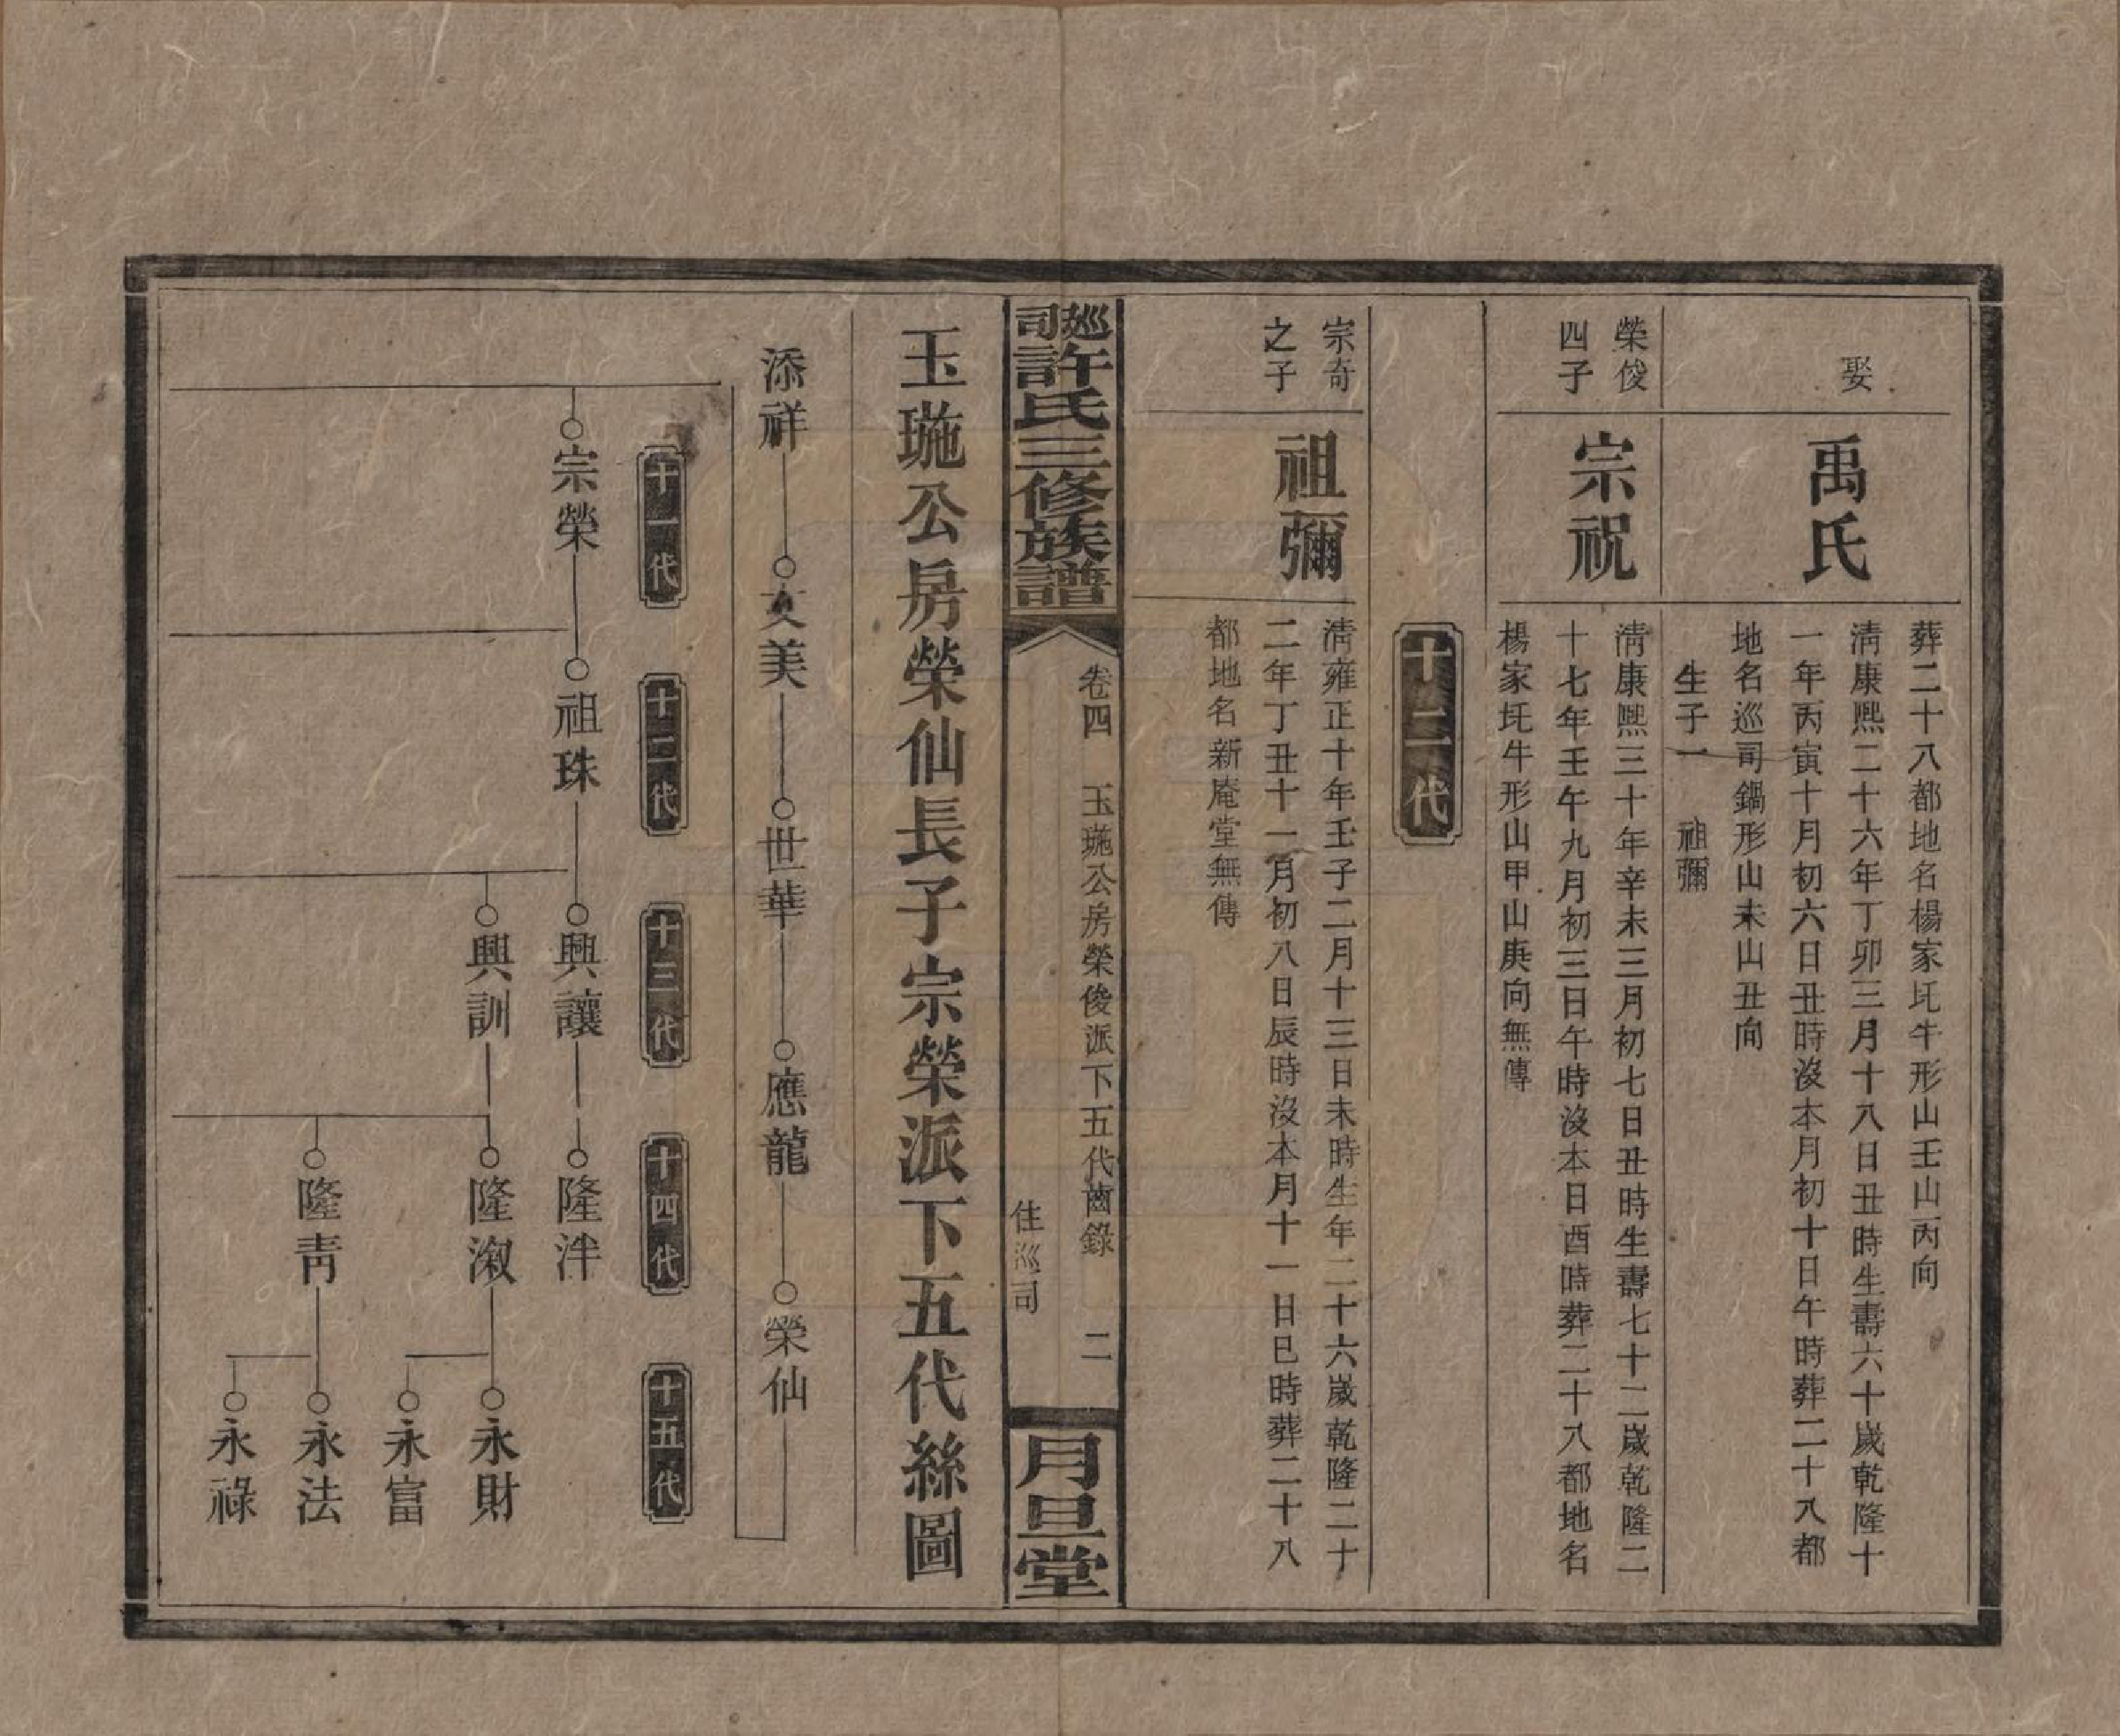 葬二十八都地名楊家圫牛形山壬山丙向
娶
禹氏
清康熙二十六年丁卯三月十八日丑時生壽六十歲乾隆十
一年丙寅十月初六日丑時沒本月初十日午時葬二十八都
地名巡司鍋形山未山丑向
生子一　祖彌
榮俊
四子
宗祝
清康熙三十年辛未三月初七日丑時生壽七十二歲乾隆二
十七年壬午九月初三日午時沒本日酉時葬二十八都地名
楊家圫牛形山甲山庚向無傳
十二代
宗奇
之子
祖彌
清雍正十年壬子二月十三日未時生年二十六歲乾隆二十
二年丁丑十一月初八日辰時沒本月十一日巳時葬二十八
都地名新庵堂無傳
巡司許氏三修族譜
卷四　玉㻫公房榮俊派下五代齒錄　二
住巡司
月旦堂
玉㻫公房榮仙長子宗榮派下五代絲圖
添祥　文美　世華　應龍　榮仙
十一代　十二代　十三代　十四代　十五代
宗榮　祖珠　興讓　隆泮
興訓　隆淑　永財
永富
隆青　永法
永祿